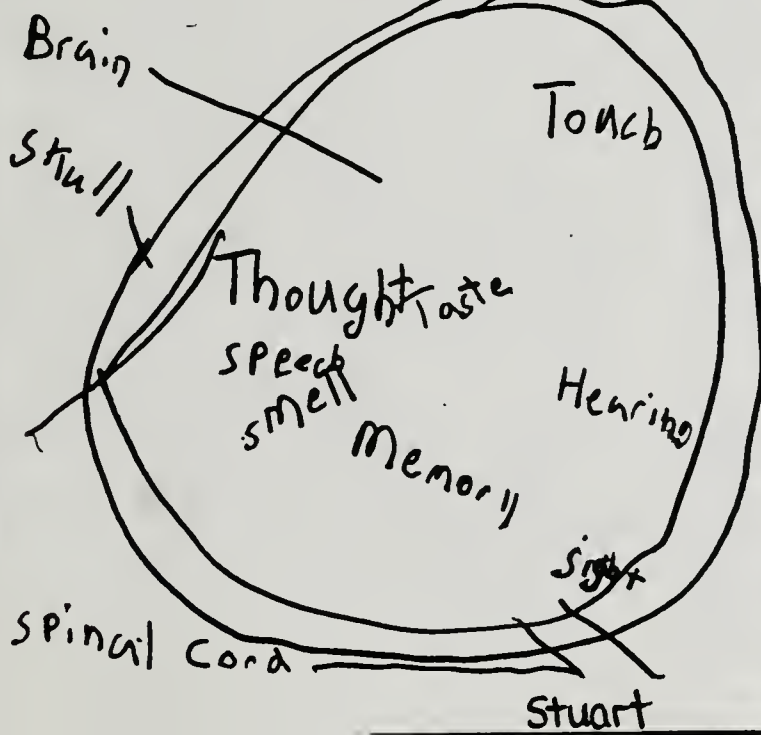 Brain
Skull
Touch
Thought Taste
Speech
smell
Memory
Hearing
Sight
spinal Cord
Stuart